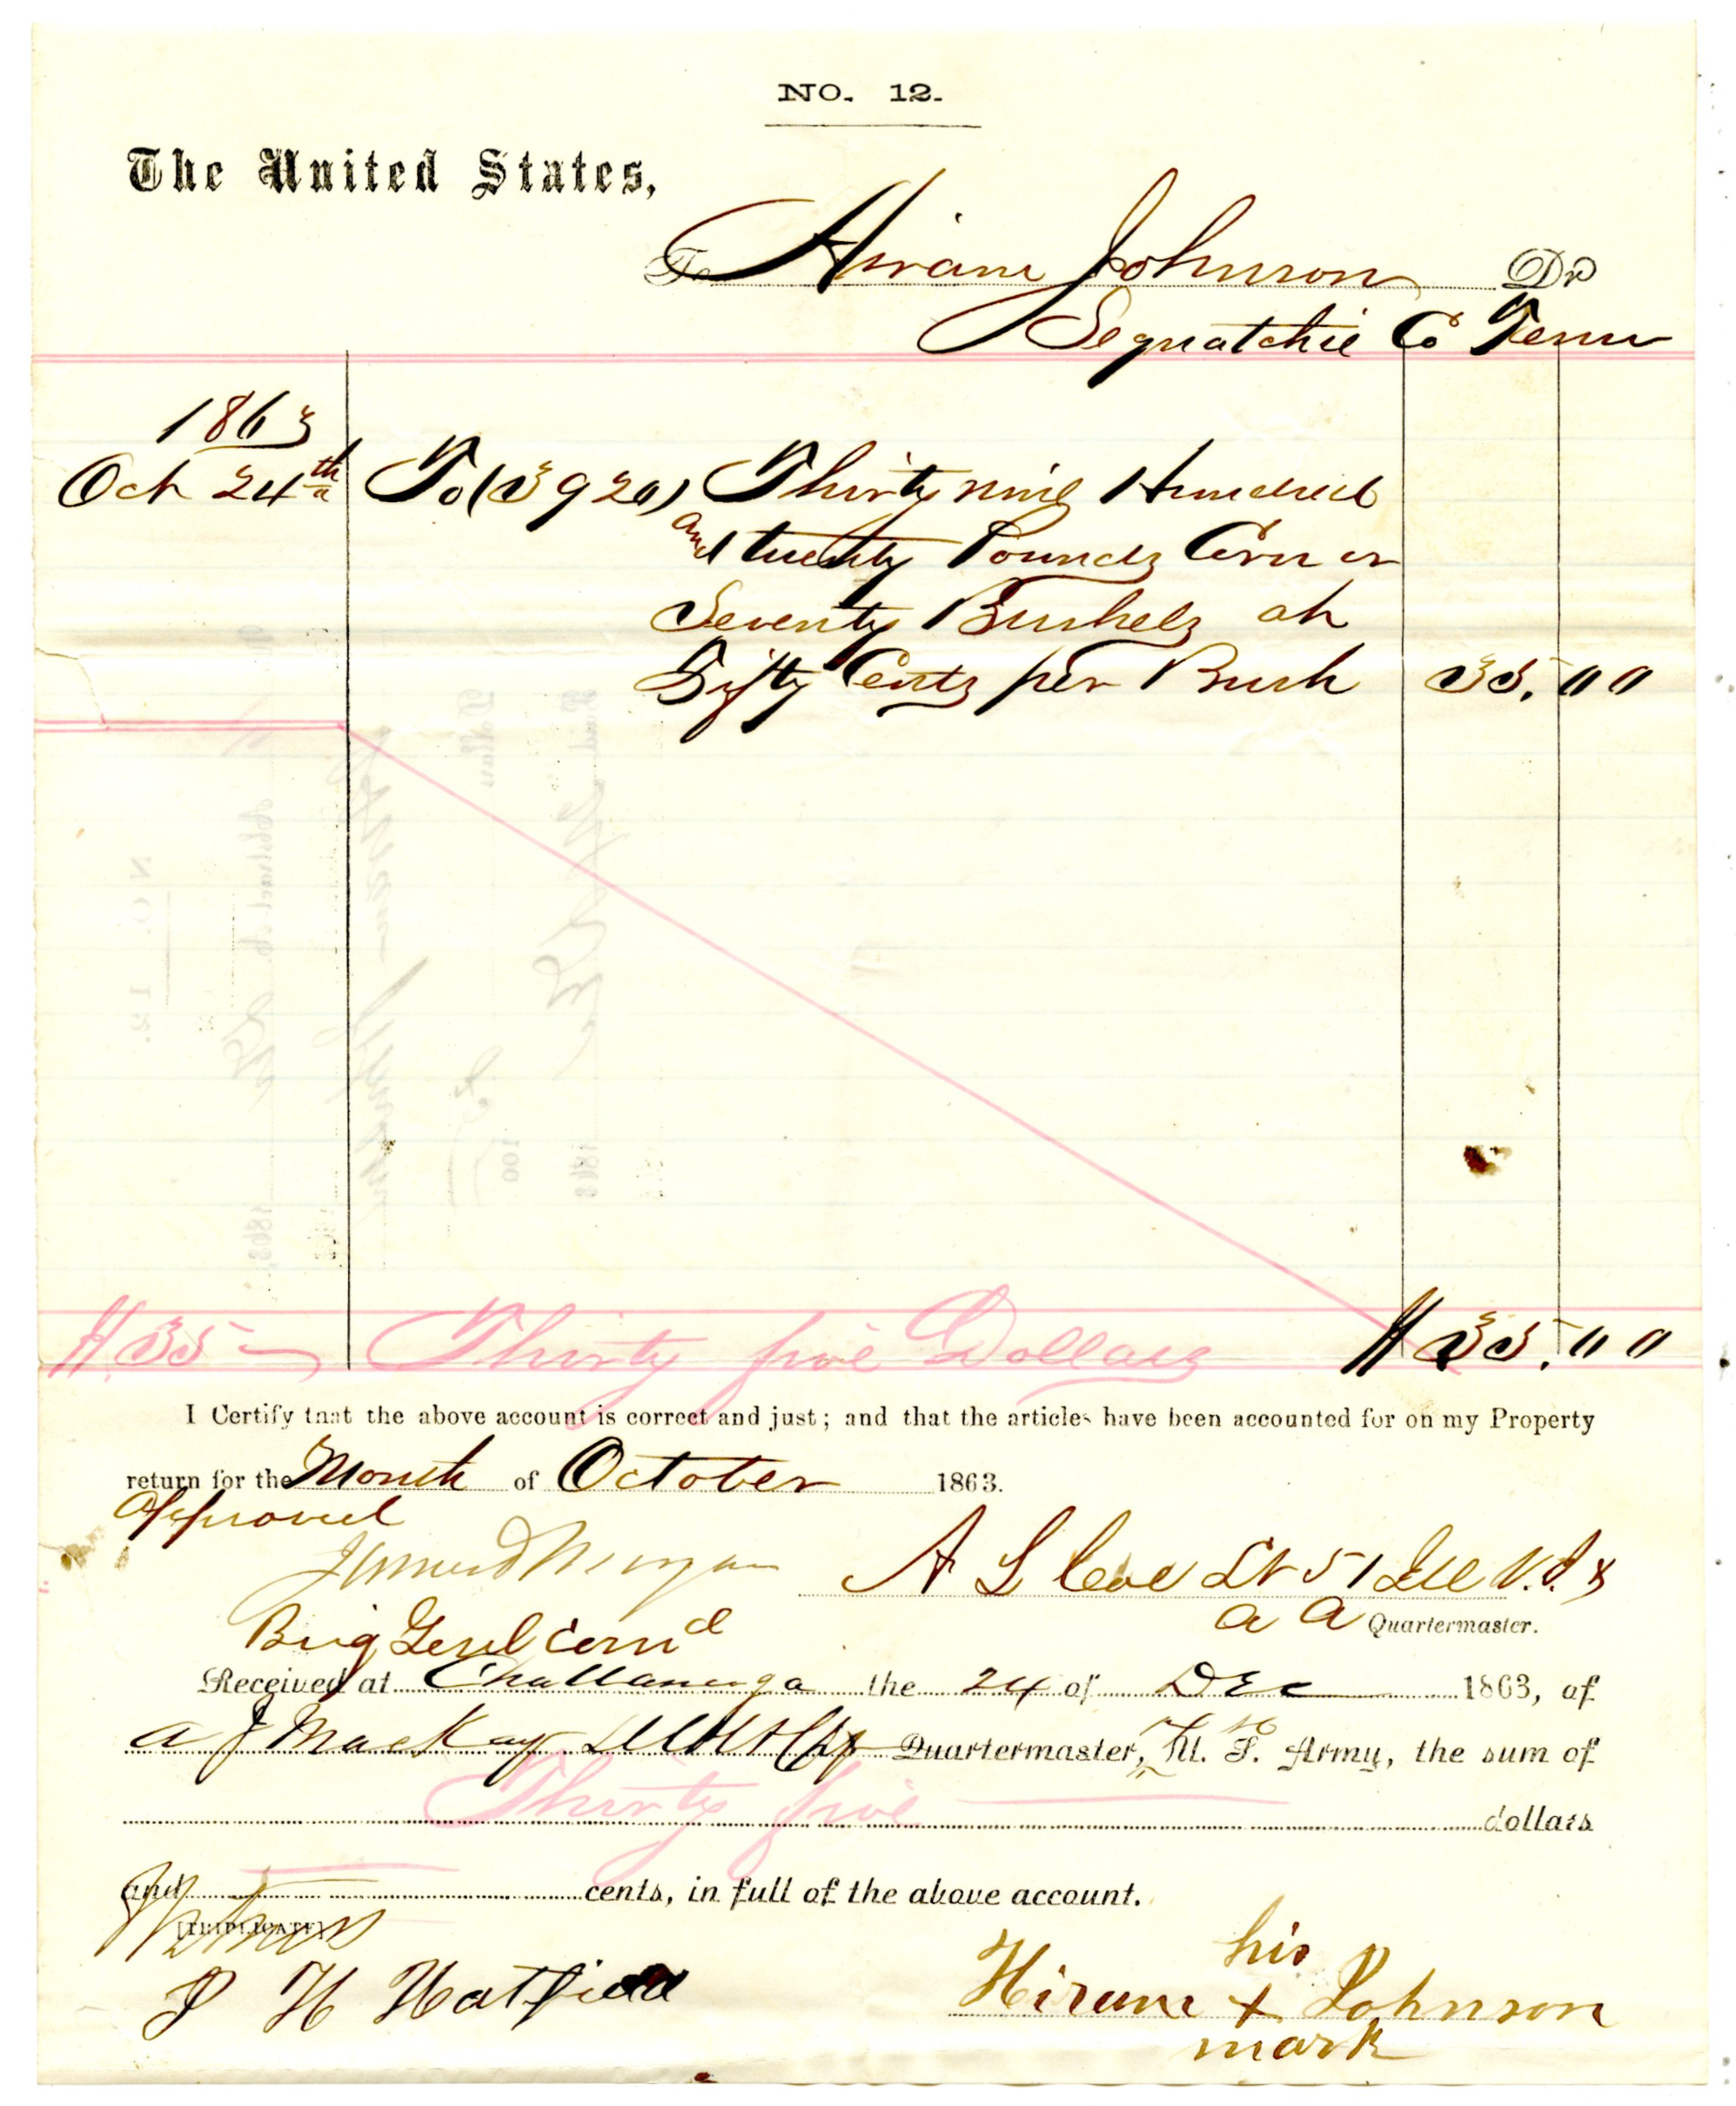 NO. 12.
The United States,
To Hiram Johnson Dr
Sequatchie Co Tenn
1863
Oct 24th To (3920) Thirty nine Hundred
and twenty Pounds Corn or
Seventy Bushels at
Fifty Cents per Bush 35.00
$35 Thirty five Dollars $35.00
I Certify that the above account is correct and just; and that the articles have been accounted for on my Property
return for the Month of October 1863.
Approved
James D Morgan A L Coe Lt 51 Ill V.I. &
Brig Genl Com'd a a Quartermaster.
Received at Chattanooga the 24 of Dec 1863, of
A J Mackay Quartermaster, U. S. Army, the sum of
Thirty five dollars
and cents, in full of the above account.
[TRIPLICATE]
Witness
his
J H Hatfield Hiram x Johnson
mark